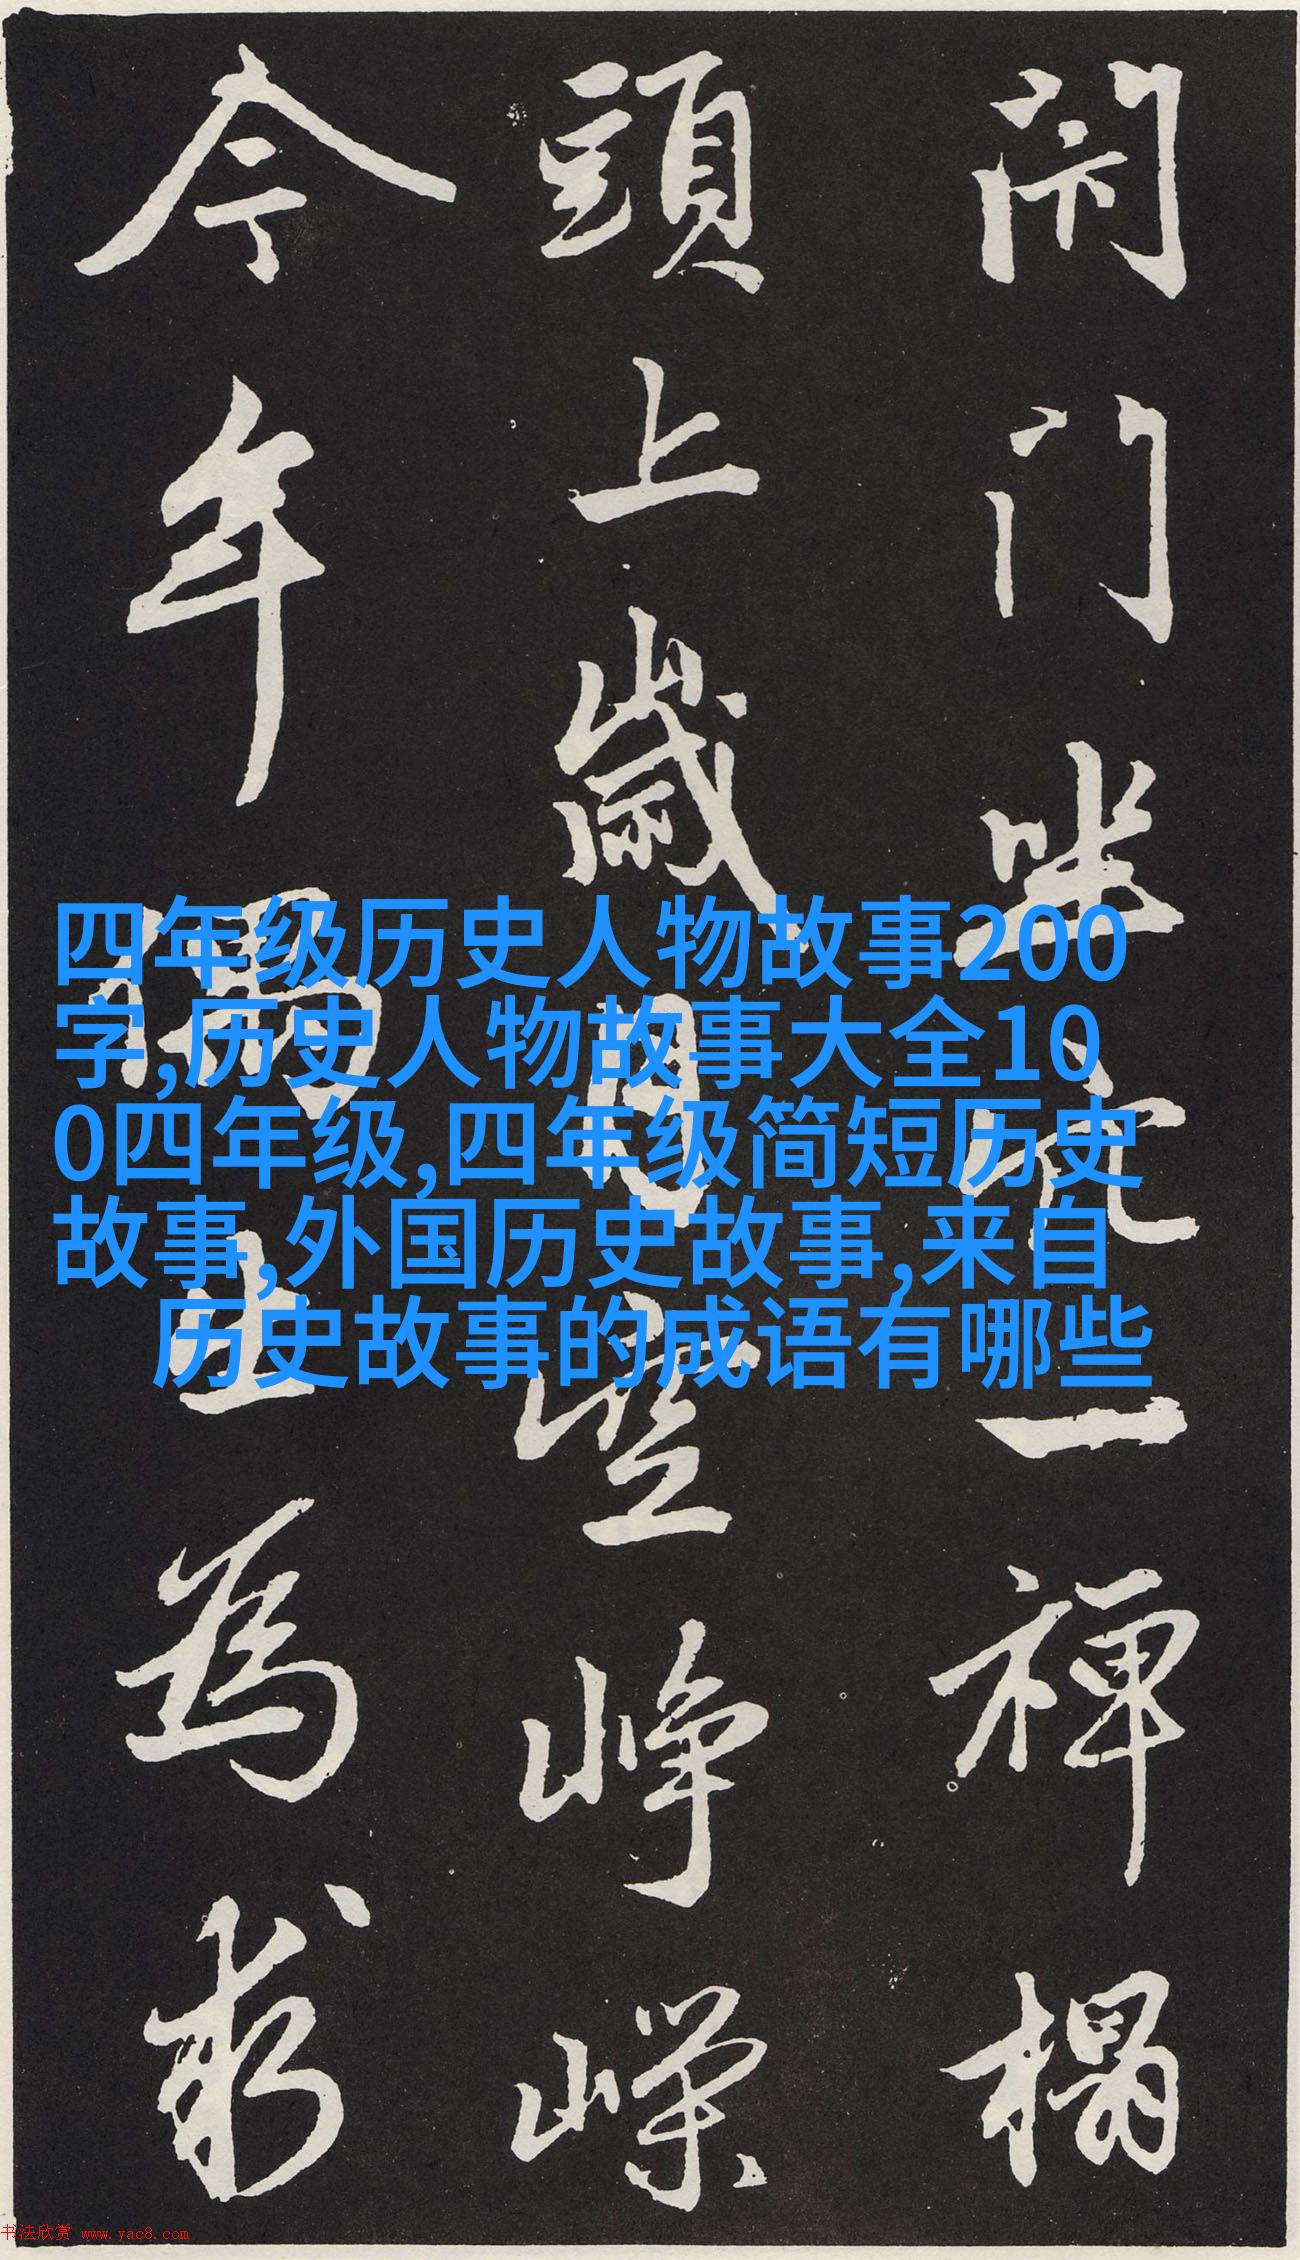 闭门坐穴一禅榻
頭上歲月空崢嶸
今年偶出為求
四年级历史人物故事200
字,历史人物故事大全10
0四年级,四年级简短历史
故事,外国历史故事,来自
历史故事的成语有哪些
书法欣赏 www.yac8.com